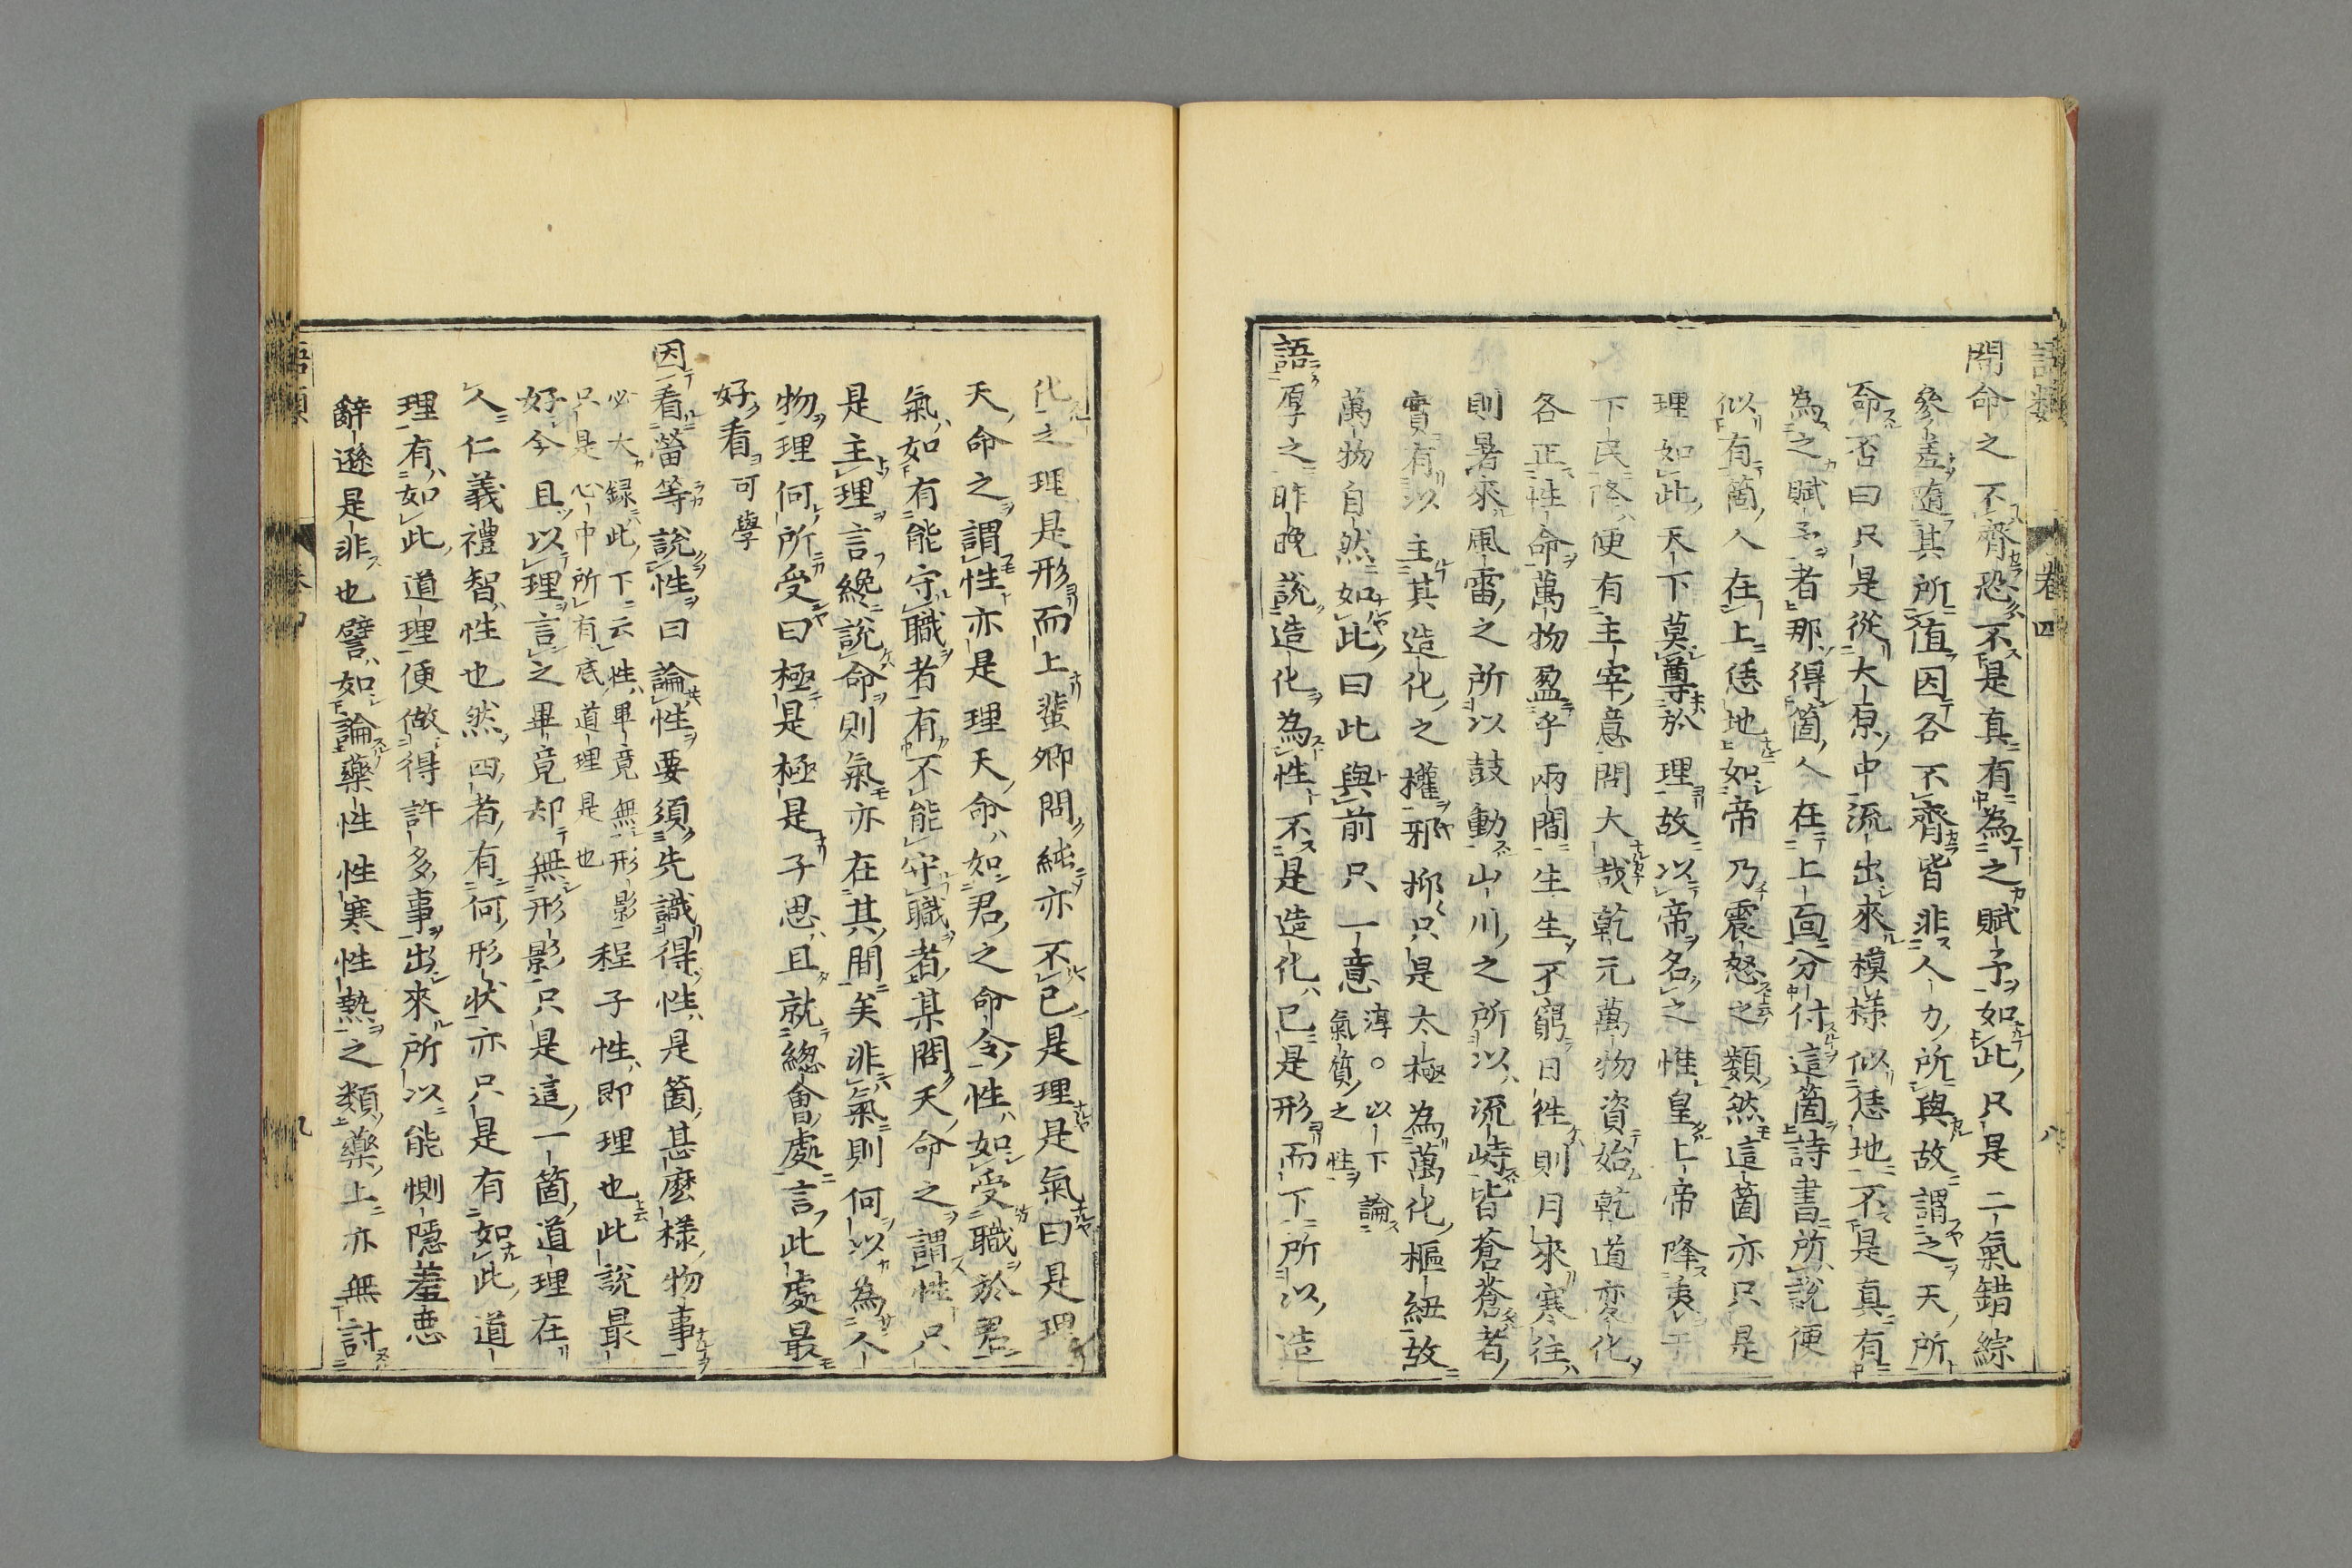 語類 卷四 八
問命之不齊恐不是真有為之賦予如此只是二氣錯綜
參差隨其所值因各不齊皆非人力所與故謂之天所
命否曰只是從大原中流出來模樣似恁地不是真有
為之賦予者那得箇人在上面分付這箇詩書所說便
似有箇人在上恁地如帝乃震怒之類然這箇亦只是
理如此天下莫尊於理故以帝名之惟皇上帝降衷于
下民降便有主宰意問大哉乾元萬物資始乾道変化
各正性命萬物盈乎兩間生生不窮日徃則月來寒往
則暑來風雷之所以鼓動山川之所以流峙皆蒼蒼者
實有以主其造化之權邪抑只是太極為萬化樞紐故
萬物自然如此曰此與前只一意淳○以下論
氣質之性
語厚之昨晚說造化為性不是造化已是形而下所以造
化之理是形而上蜚卿問純亦不已是理是氣曰是理
天命之謂性亦是理天命如君之命令性如受職於君
氣如有能守職者有不能守職者某問天命之謂性只
是主理言纔說命則氣亦在其間矣非氣則何以為人
物理何所受曰極是極是子思且就總會處言此處最
好看可學
因看㽦等說性曰論性要須先識得性是箇甚麼樣物事
必大録此下云性畢竟無形影
只是心中所有底道理是也
程子性即理也此說最
好今且以理言之畢竟却無形影只是這一箇道理在
人仁義禮智性也然四者有何形狀亦只是有如此道
理有如此道理便做得許多事出來所以能惻隱羞悪
辭遜是非也譬如論藥性性寒性熱之類藥上亦無討
語類 卷四 九